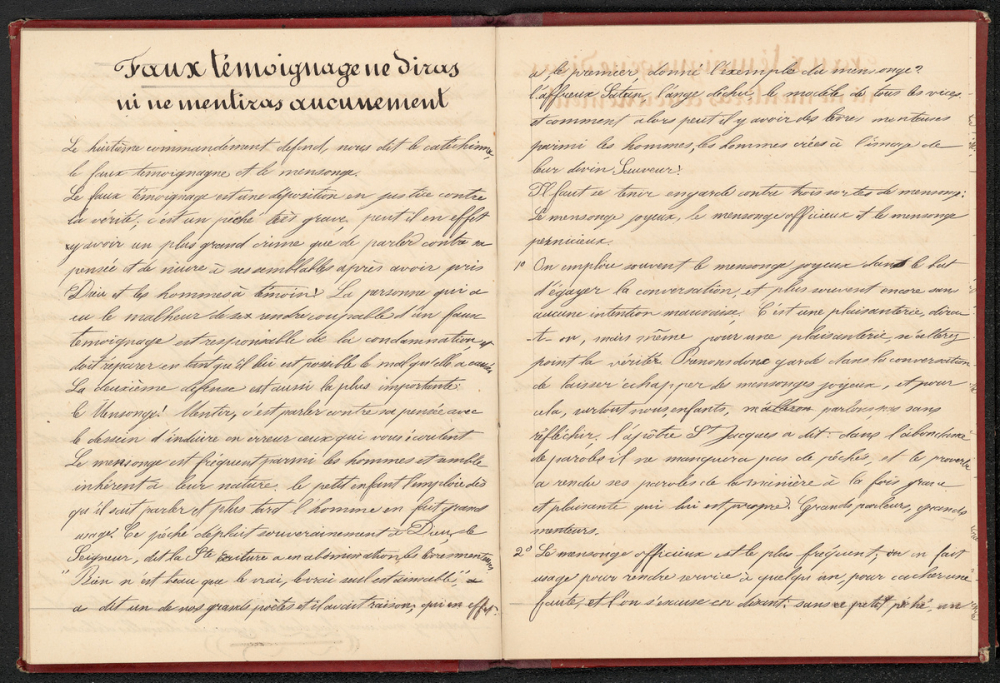 Faux témoignage ne diras
ni ne mentiras aucunement
Le huitième commandement défend, nous dit le catéchisme,
le faux témoignagne et le mensonge.
Le faux témoignage est une déposition en justice contre
la vérité, c'est un péché très grave, peut il en effet
y avoir un plus grand crime que de parler contre sa
pensée et de nuire à ses semblables après avoir pris
Dieu et les hommes à témoin! La personne qui a
eu le malheur de se rendre coupable d'un faux
temoignage est responsable de la condamnation et
doit réparer en tant qu'il lui est possible le mal qu'elle a causé.
La deuxième défense est aussi la plus importante:
le Mensonge! Mentir, c'est parler contre sa pensée avec
le dessein d'induire en erreur ceux qui vous écoutent
Le mensonge est fréquent parmi les hommes et semble
inhérent à leur nature. le petit enfant l'emploie dès
qu'il sait parler et plus tard l'homme en fait grand
usage! Ce péché déplait souverainement à Dieu, le
Seigneur, dit la Ste Ecriture a en abomination, les lèvres menteuses
"Rien n'est beau que le vrai, le vrai seul est aimable", a
a dit un de nos grands poètes et il avait raison, qui en effet
a, le premier donné l'exemple du mensonge?
l'affreux Satan, l'ange déchu, le modèle de tous les vices
et comment alors peut il y avoir des lèvres menteuses
parmi les hommes, les hommes créés à l'image de
leur divin Sauveur!
Il faut se tenir en garde contre trois sortes de mensonges:
Le mensonge joyeux, le mensonge officieux et le mensonge
pernicieux.
1o On emploie souvent le mensonge joyeux dans le but
d'égayer la conversation, et plus souvent encore sans
aucune intention mauvaise. C'est une plaisanterie, dira-
t-on, mais même, pour une plaisanterie, n'altérez
point la vérité. Prenons donc garde dans la conversation
de laisser échapper de mensonges joyeux, et pour
cela, surtout nous, enfants, parlons pas sans
réfléchir. l'apôtre St Jacques a dit: dans l'abondance
de paroles il ne manquera pas de péchés, et le proverbe
a rendu ses paroles de la manière à la fois grave
et plaisante qui lui est propre: Grands parleurs, grands
menteurs.
2o Le mensonge officieux est le plus fréquent; on en fait
usage pour rendre service à quelqu'un, pour cacher une
faute, et l'on s'excuse en disant: sans ce petit péché, une